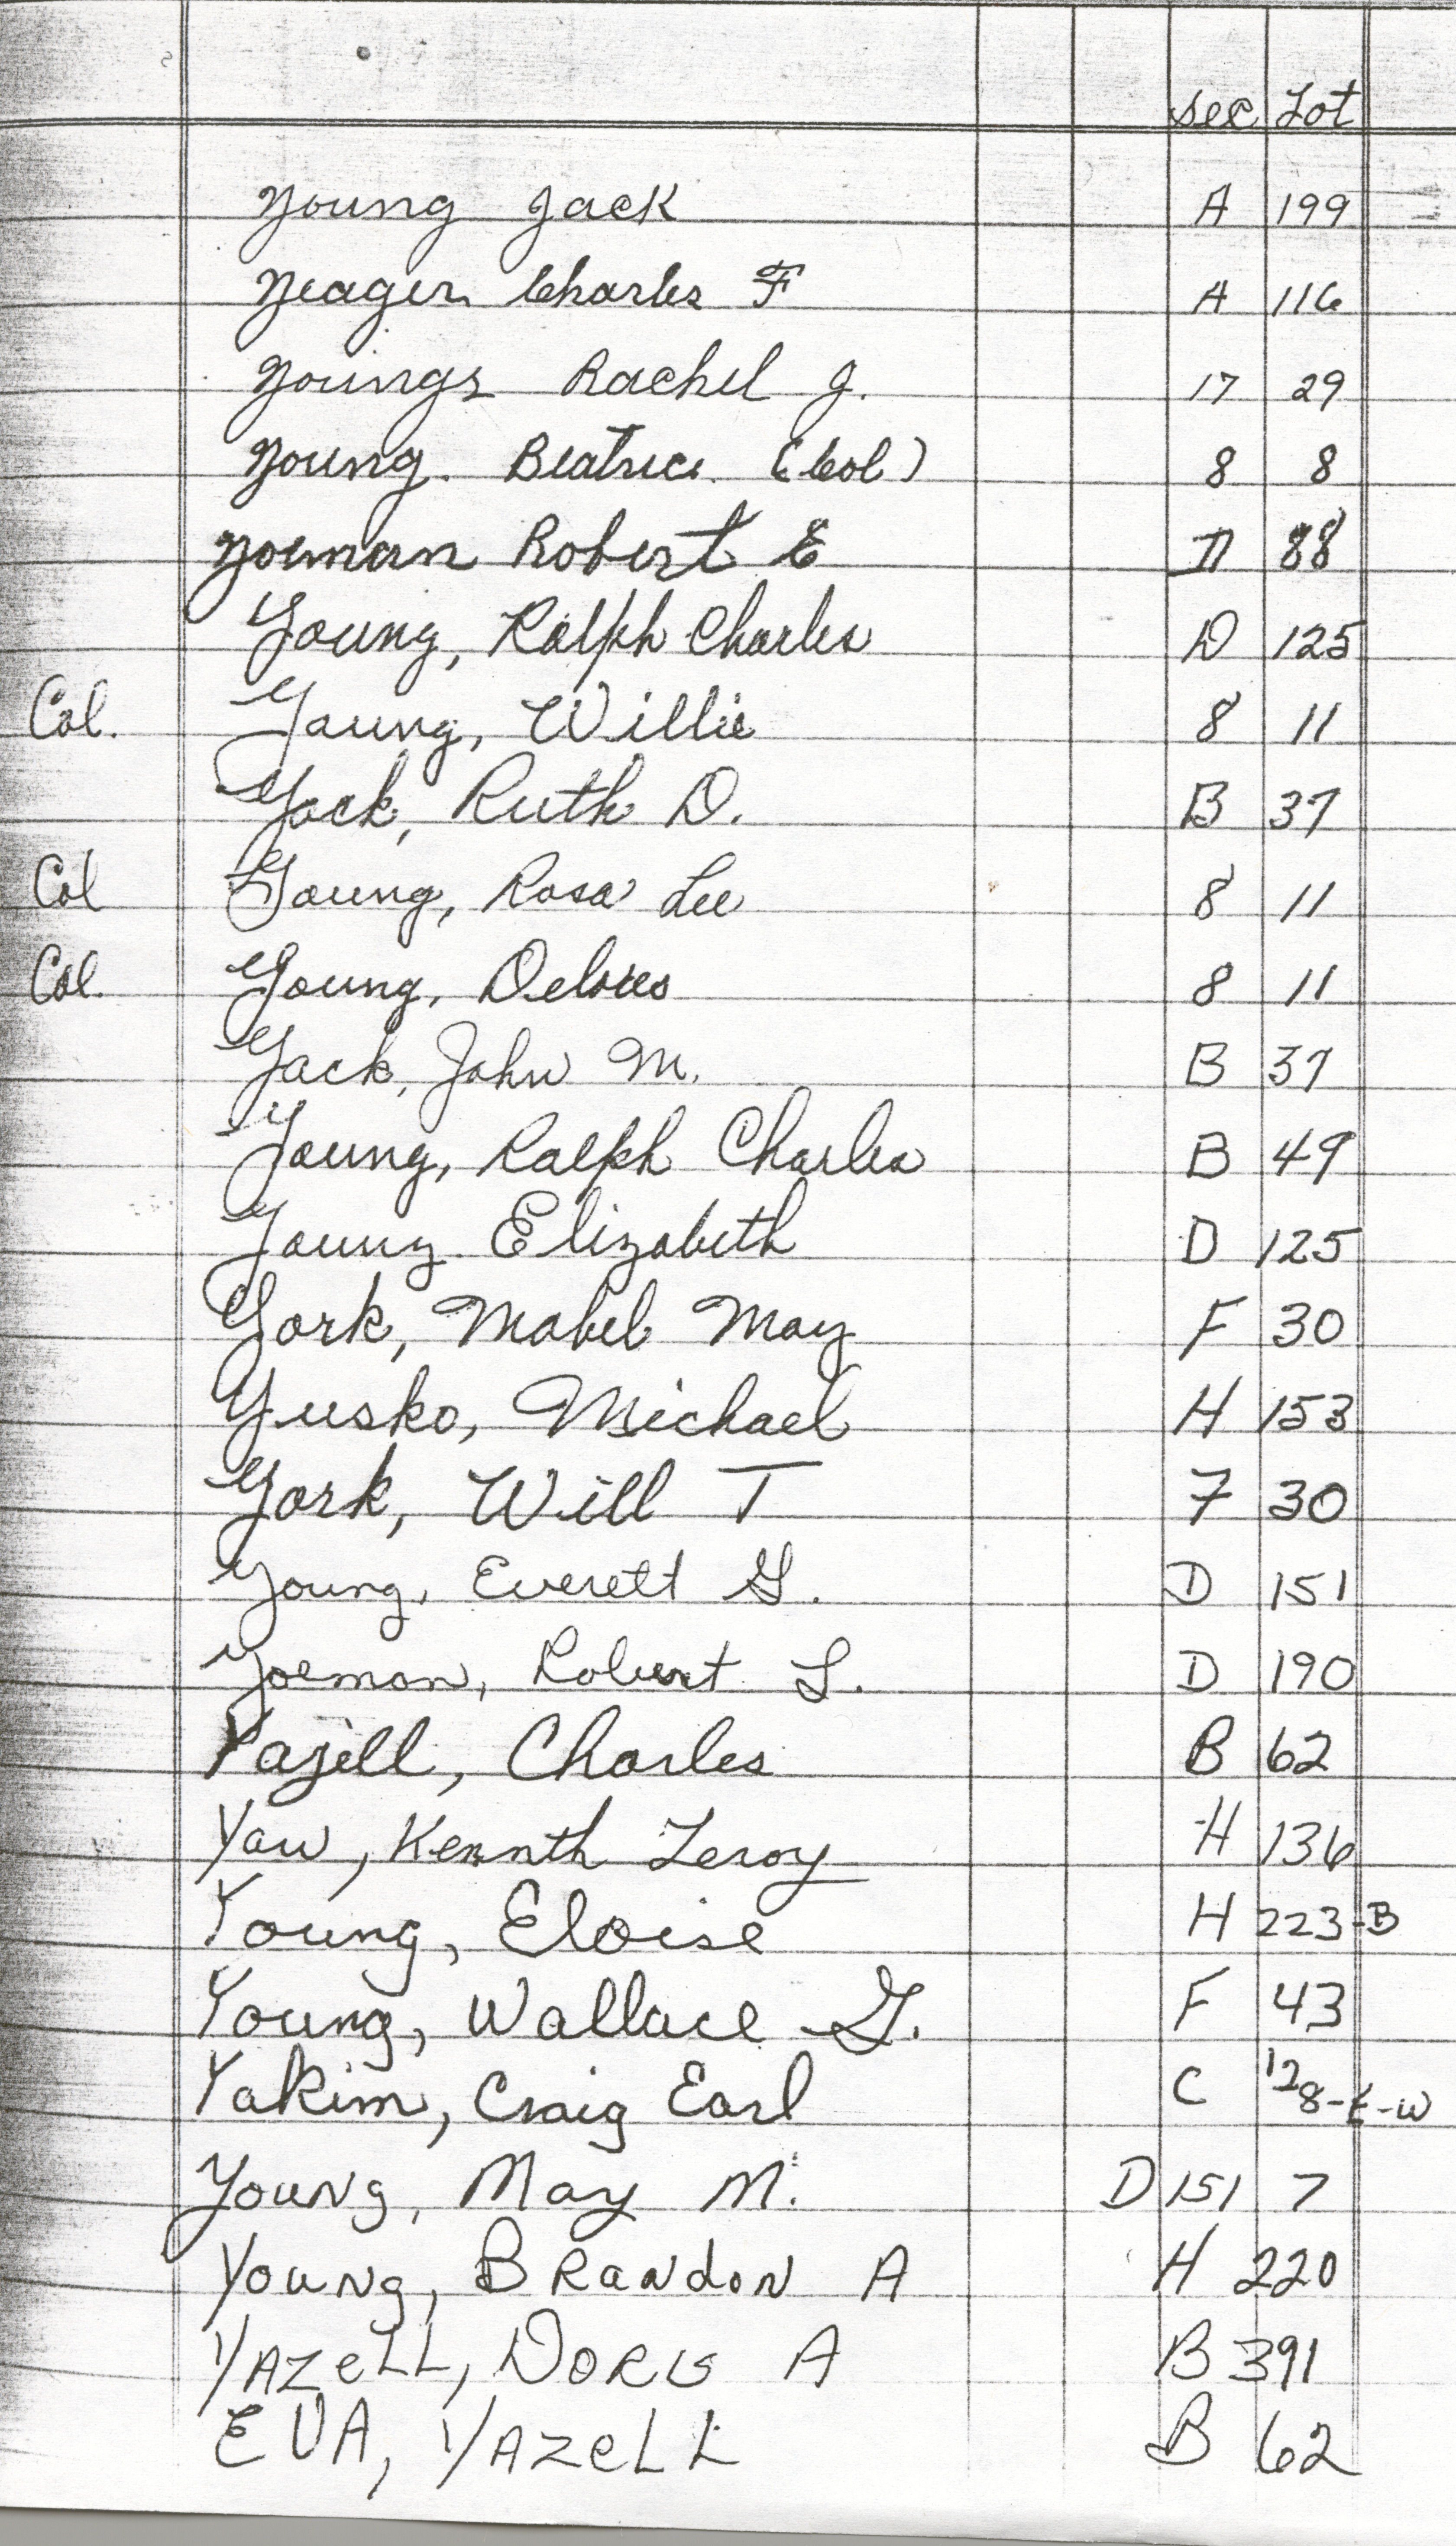 Sec Lot
Young Jack A 199
Yeager Charles F A 116
Youngs Rachel J. 17 29
Young. Beatrice. (Col) 8 8
Yoeman Robert E D 88
Young, Ralph Charles D 125
Col. Young, Willie 8 11
Yock, Ruth D. B 37
Col Young, Rosa Lee 8 11
Col. Young, Delores 8 11
Yack, John M. B 37
Young, Ralph Charles B 49
Young Elizabeth D 125
York, Mabel May F 30
Yusko, Michael H 153
York, Will T F 30
Young, Everett G. D 151
Yoeman, Robert L. D 190
Yazell, Charles B 62
Yaw, Kennth Leroy H 136
Young, Eloise H 223-B
Young, Wallace G. F 43
Yakim, Craig Earl C 128-E-W
Young, May M. D 151 7
Young, Brandon A H 220
YAZeLL, DORIS A B 391
EVA, YAZeLL B 62